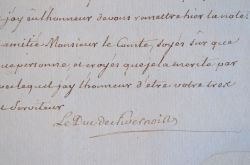 j'ay eu l'honneur de vous remettre hier la note
amitié Monsieur le Comte, soyés sûr que
personne, et croyés que je la merite, par
lequel j'ay l'honneur d'être votre tres
Serviteur
Le Duc de